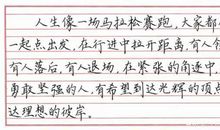 人生像一场马拉松赛跑，大家都
一起点出发，在行进中拉开距离，有人领
有人落后，有人退场，在紧张的角逐中，
勇敢坚强的人，有希望到达光辉的顶点
达理想的彼岸。